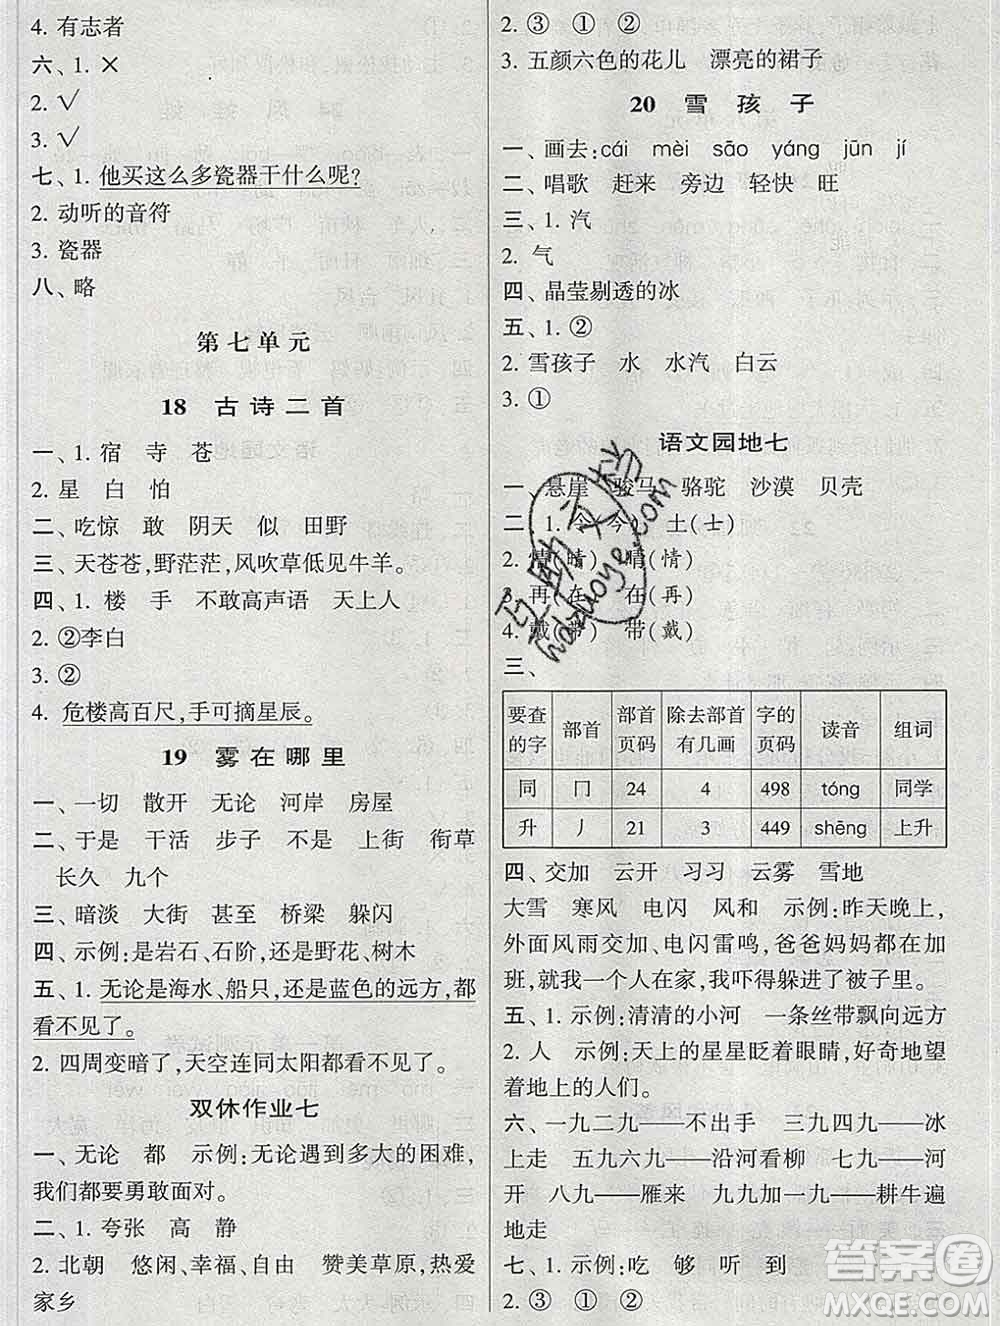 4. 有志者
六、1. ×
2. √
3. √
七、1. 他买这么多瓷器干什么呢?
2. 动听的音符
3. 瓷器
八、略
第七单元
18 古诗二首
一、1. 宿 寺 苍
2. 星 白 怕
二、吃惊 敢 阴天 似 田野
三、天苍苍,野茫茫,风吹草低见牛羊。
四、1. 楼 手 不敢高声语 天上人
2. ②李白
3. ②
4. 危楼高百尺,手可摘星辰。
19 雾在哪里
一、一切 散开 无论 河岸 房屋
二、于是 干活 步子 不是 上街 衔草
长久 九个
三、暗淡 大街 甚至 桥梁 躲闪
四、示例:是岩石、石阶,还是野花、树木
五、1. 无论是海水、船只,还是蓝色的远方,都
看不见了。
2. 四周变暗了,天空连同太阳都看不见了。
双休作业七
一、无论 都 示例:无论遇到多大的困难,
我们都要勇敢面对。
二、1. 夸张 高 静
2. 北朝 悠闲、幸福、自由 赞美草原,热爱
家乡
2. ③ ① ②
3. 五颜六色的花儿 漂亮的裙子
20 雪孩子
一、画去:cái mèi sāo yáng jūn jí
二、唱歌 赶来 旁边 轻快 旺
三、1. 汽
2. 气
四、晶莹剔透的冰
五、1. ②
2. 雪孩子 水 水汽 白云
3. ①
语文园地七
一、悬崖 骏马 骆驼 沙漠 贝壳
二、1. 令 今 土(士)
2. 情(晴) 晴(情)
3. 再(在) 在(再)
4. 戴(带) 带(戴)
三、
要查的字 部首 部首页码 除去部首有几画 字的页码 读音 组词
同 冂 24 4 498 tóng 同学
升 丿 21 3 449 shēng 上升
四、交加 云开 习习 云雾 雪地
大雪 寒风 电闪 风和 示例:昨天晚上,
外面风雨交加、电闪雷鸣,爸爸妈妈都在加
班,就我一个人在家,我吓得躲进了被子里。
五、1. 示例:清清的小河 一条丝带飘向远方
2. 人 示例:天上的星星眨着眼睛,好奇地望
着地上的人们。
六、一九二九——不出手 三九四九——冰
上走 五九六九——沿河看柳 七九——河
开 八九——雁来 九九加一九——耕牛遍
地走
七、1. 示例:吃 够 听 到
2. ③ ① ②
互助文档
hdzuoye.com
答案圈
MXQE.COM